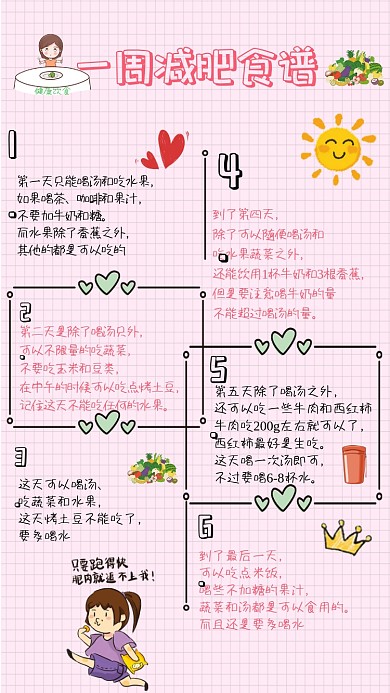 一周减肥食谱
健康饮食
1
第一天只能喝汤和吃水果，
如果喝茶、咖啡和果汁，
不要加牛奶和糖。
而水果除了香蕉之外，
其他的都是可以吃的
2
第二天是除了喝汤只外，
可以不限量的吃蔬菜，
不要吃玉米和豆类，
在中午的时候可以吃点烤土豆，
记住这天不能吃任何的水果。
3
这天可以喝汤、
吃蔬菜和水果，
这天烤土豆不能吃了，
要多喝水
只要跑得快
肥肉就追不上我！
4
到了第四天，
除了可以随便喝汤和
吃水果蔬菜之外，
还能饮用1杯牛奶和3根香蕉，
但是要注意喝牛奶的量
不能超过喝汤的量。
5
第五天除了喝汤之外，
还可以吃一些牛肉和西红柿
牛肉吃200g左右就可以了，
西红柿最好是生吃。
这天喝一次汤即可，
不过要喝6-8杯水。
6
到了最后一天，
可以吃点米饭，
喝些不加糖的果汁，
蔬菜和汤都是可以食用的。
而且还是要多喝水